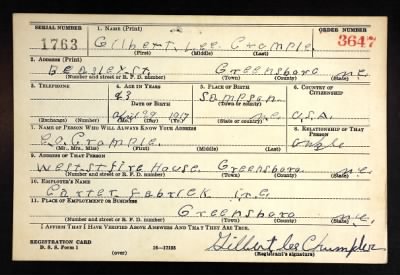 SERIAL NUMBER 1. NAME (Print) ORDER NUMBER
1763 Gilbert Lee Crample 3647
(First) (Middle) (Last)
2. ADDRESS (Print)
Beasley St Greensboro N.C.
(Number and street or R. F. D. number) (Town) (County) (State)
3. TELEPHONE 4. AGE IN YEARS 5. PLACE OF BIRTH 6. COUNTRY OF CITIZENSHIP
Sampson
DATE OF BIRTH (Town or county)
April N.C. U.S.A.
(Exchange) (Number) (Mo.) (Day) (Yr.) (State or country)
7. NAME OF PERSON WHO WILL ALWAYS KNOW YOUR ADDRESS 8. RELATIONSHIP OF THAT PERSON
Crample
(Mr., Mrs., Miss) (First) (Middle) (Last)
9. ADDRESS OF THAT PERSON
West St Fire House Greensboro N.C.
(Number and street or R. F. D. number) (Town) (County) (State)
10. EMPLOYER'S NAME
Carter Fabrick
11. PLACE OF EMPLOYMENT OR BUSINESS
Greensboro N.C.
(Number and street or R. F. D. number) (Town) (County) (State)
I AFFIRM THAT I HAVE VERIFIED ABOVE ANSWERS AND THAT THEY ARE TRUE.
REGISTRATION CARD
D. S. S. Form 1 Gilbert Lee Chumpler
(over) (Registrant's signature)